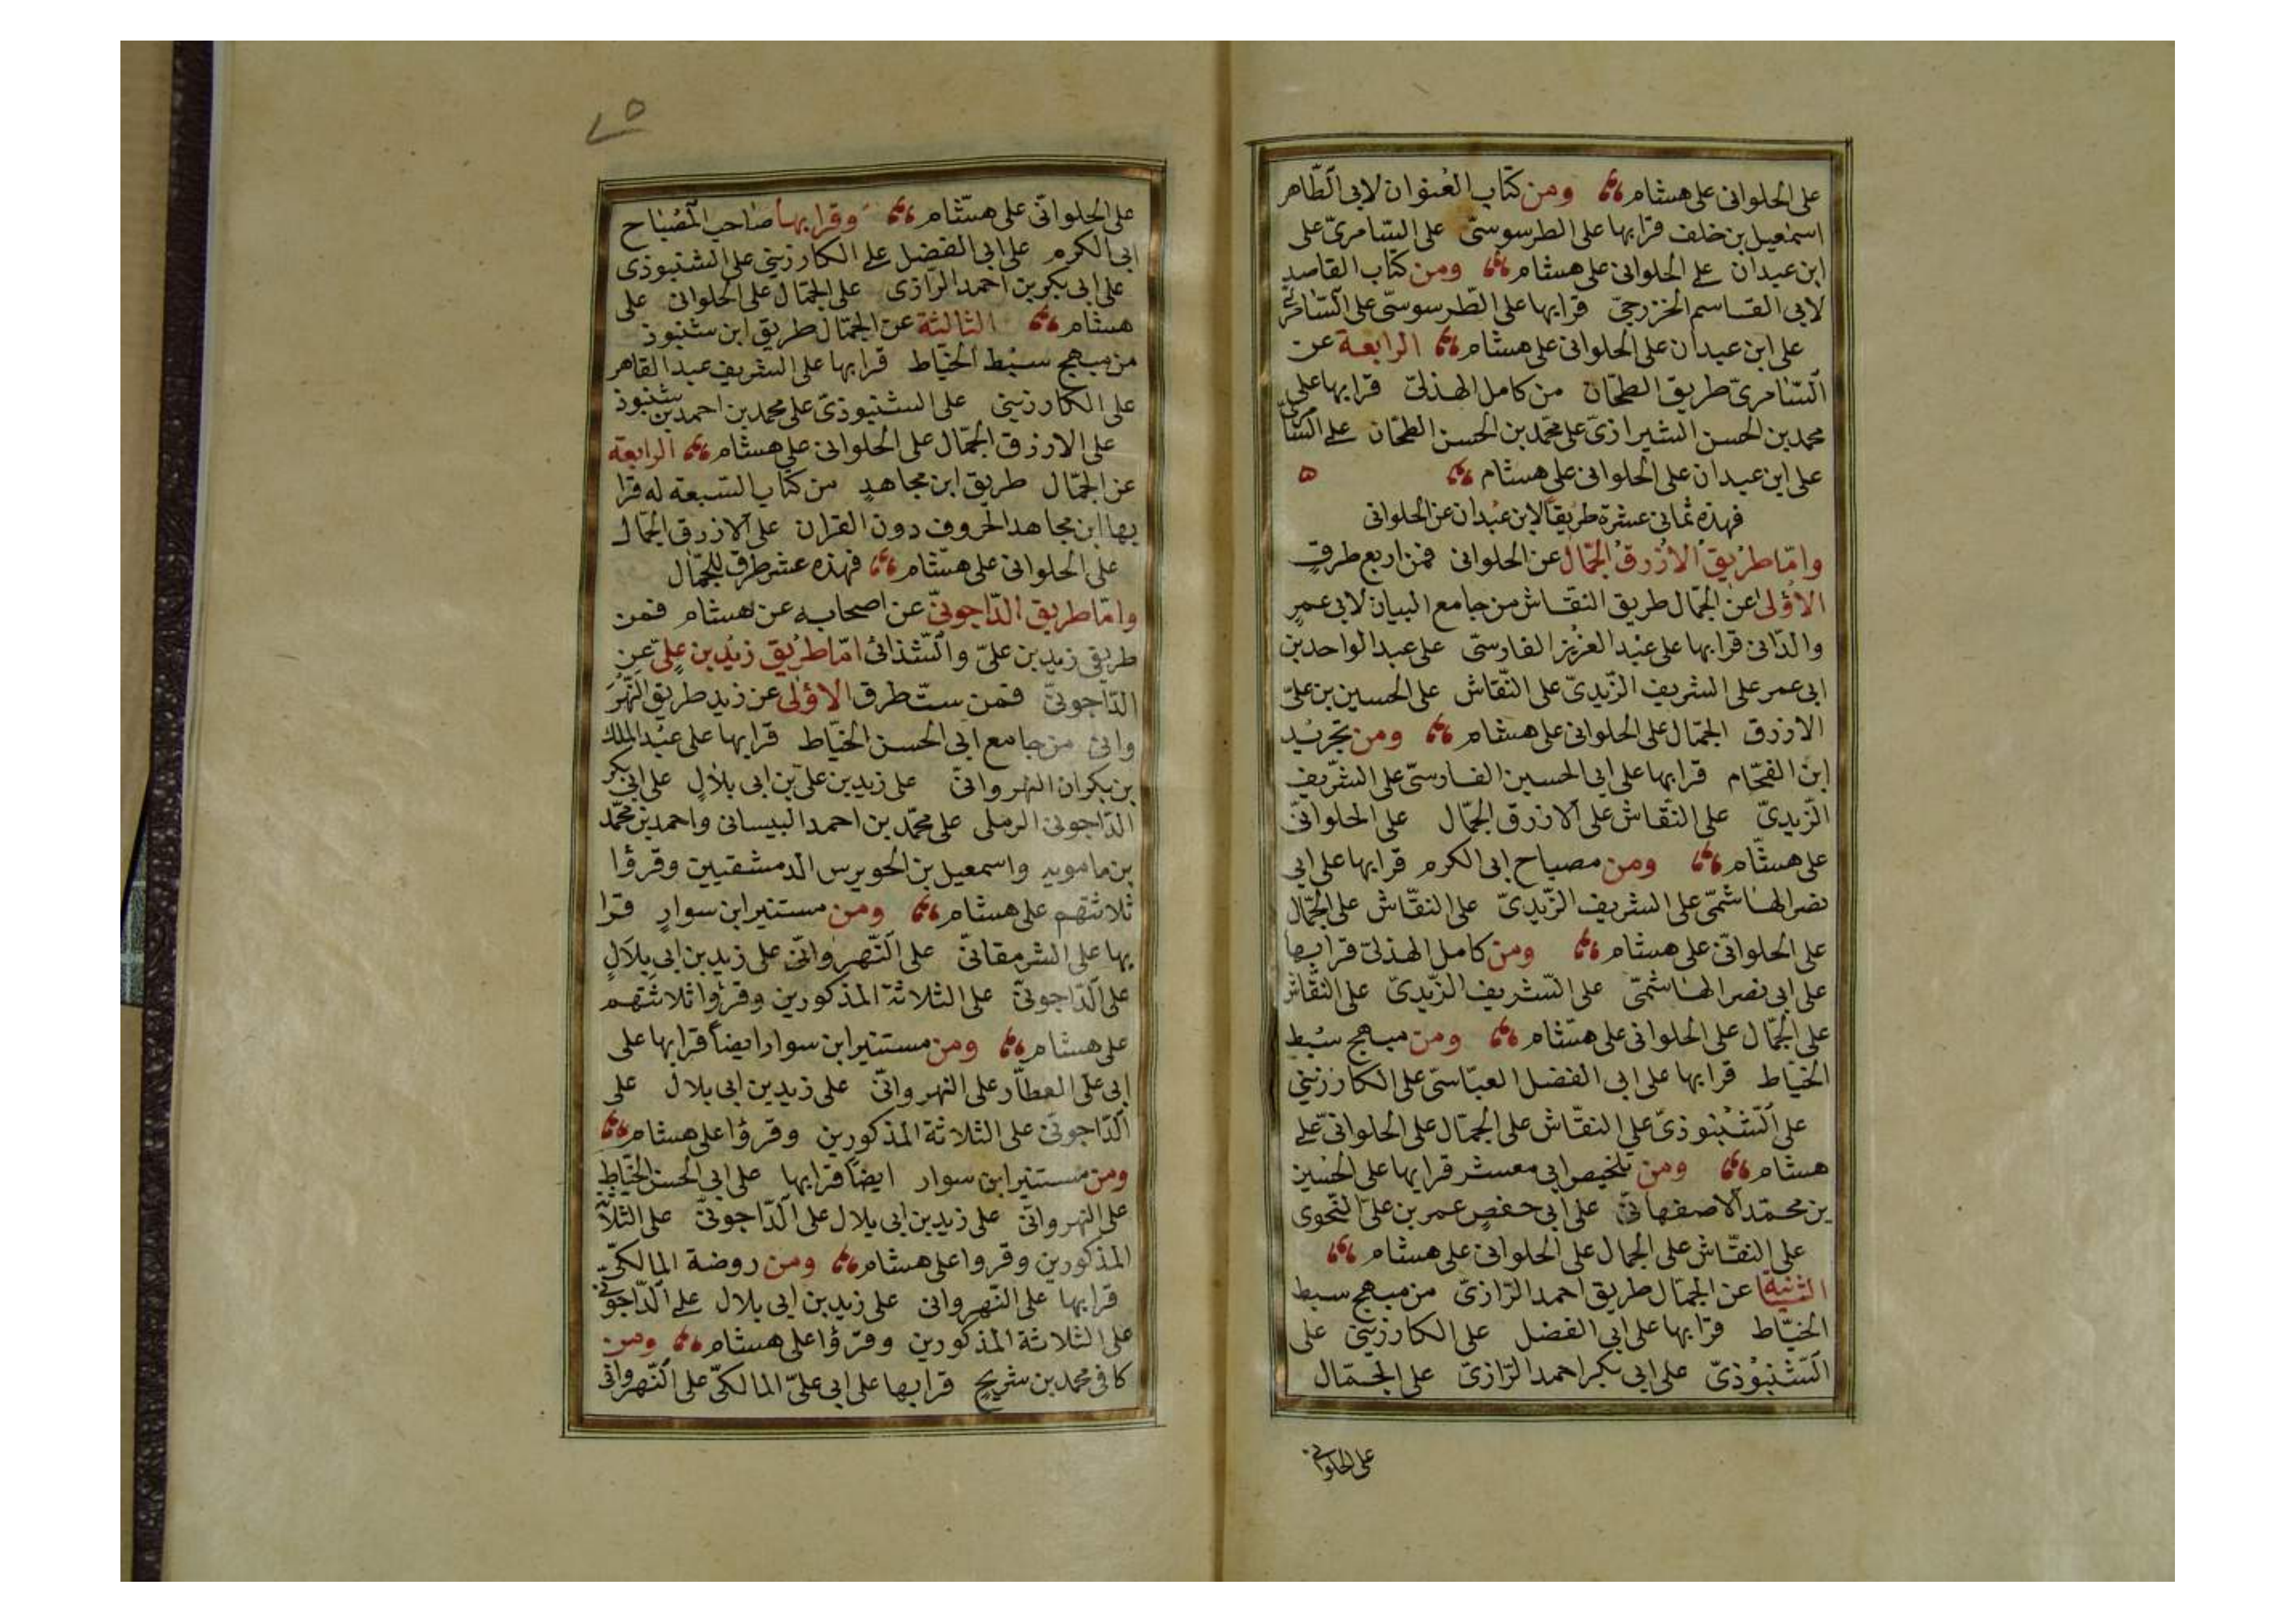 على الحلوانى على هشام ومن كتاب العنوان لابى الطّاهر
اسمعيل بن خلف قرا بها على الطرسوسىّ على السّامرىّ على
ابن عبدان على الحلوانى على هشام ومن كتاب القاصد
لابى القاسم الخزرجىّ قرا بها على الطّرسوسىّ على السّامرّى
على ابن عبدان على الحلوانى على هشام الرابعة عن
السّامرىّ طريق الطحّان من كامل الهذلىّ قرا بها على
محمد بن الحسن الشيرازىّ على محمّد بن الحسن الطحّان على
على ابن عبدان على الحلوانى على هشام ٥
فهذه ثمانى عشرة طريقًا لابن عبدان عن الحلوانى
وامّا طريق الازرق الجمّال عن الحلوانى فمن اربع طرقٍ
الاولى عن الجمّال طريق النقّاش من جامع البيان لابى عمرٍ
والدّانى قرا بها على عبد العزيز الفارسىّ على عبد الواحد بن
ابى عمر على الشريف الزّيدىّ على النّقاش على الحسين بن علىّ
الازرق الجمّال على الحلوانى على هشام ومن تجريد
ابن الفحّام قرا بها على ابى الحسين الفارسىّ على الشّريف
الزّيدىّ على النّقاش على الازرق الجمّال على الحلوانىّ
على هشام ومن مصباح ابى الكرم قرا بها على ابى
نصر الهاشمّى على الشريف الزّيدىّ على النقّاش على الجمّال
على الحلوانىّ على هشام ومن كامل الهذلىّ قرا بها
على ابى نصر الهاشمىّ على الشّريف الزّيدىّ على النقّاش
على الجمّال على الحلوانى على هشام ومن مبهج سبط
الخيّاط قرا بها على ابى الفضل العبّاسىّ على الكارزينى
على الشّنبوذىّ على النقّاش على الجمّال على الحلوانىّ على
هشام ومن تلخيص ابى معشر قرا بها على الحسين
بن محمّد الاصفهانىّ على ابى حفصٍ عمر بن علىّ النّحوى
على النقّاش على الجمال على الحلوانى على هشام
الثانية عن الجمّال طريق احمد الرّازىّ من مبهج سبط
الخيّاط قرا بها على ابى الفضل على الكارزينىّ على
الشّنبوذىّ على ابى بكر احمد الرّازىّ على الجمّال
على الحلوانى
٧٥
على الحلوانىّ على هشام وقرا بها صاحب المصباح
ابى الكرم على ابى الفضل على الكارزينى على الشنبوذى
على ابى بكر بن احمد الرّازى على الجمّال على الحلوانى على
هشام الثالثة عن الجمّال طريق ابن شنبوذ
من مبهج سبط الخيّاط قرا بها على الشريف عبد القاهر
على الكارزينى على الشنبوذىّ على محمد بن احمد بن شنبوذ
على الازرق الجمّال على الحلوانى على هشام الرابعة
عن الجمّال طريق ابن مجاهدٍ من كتاب السّبعة له قرا
بها ابن مجاهد الحروف دون القران على الازرق الجمّال
على الحلوانى على هشّام فهذه عشر طرق للجمّال
وامّا طريق الدّاجونىّ عن اصحابه عن هشام فمن
طريق زيد بن علىّ والشّذائى امّا طريق زيد بن علىّ عن
الدّاجونىّ فمن ستّ طرق الاولى عن زيد طريق النّهر
وانى من جامع ابى الحسن الخيّاط قرا بها على عبد الملك
بن بكران النهروانىّ على زيد بن علىّ بن ابى بلالٍ على ابى بكر
الدّاجونى الرملى على محمّد بن احمد البيسانى واحمد بن محمّد
بن مامويه واسمعيل بن الحويرس الدمشقيين وقرؤا
ثلاثتهم على هشام ومن مستنير ابن سوارٍ قرا
بها على الشرمقانىّ على النّهروانىّ على زيد بن ابى بلالٍ
على الدّاجونىّ على الثلاثة المذكورين وقرؤا ثلاثتهم
على هشام ومن مستنير ابن سوار ايضاً قرا بها على
ابى على العطّار على النهروانىّ على زيد بن ابى بلال على
الدّاجونىّ على الثلاثة المذكورين وقرؤا على هشام
ومن مستنير ابن سوار ايضًا قرا بها على ابى الحسن الخيّاط
على النهروانىّ على زيد بن ابى بلال على الدّاجونىّ على الثلاثة
المذكورين وقروا على هشام ومن روضة المالكىّ
قرا بها على النّهروانى على زيد بن ابى بلال على الدّاجونى
على الثلاثة المذكورين وقرؤا على هشام ومن
كافى محمد بن شريحٍ قرا بها على ابى علىّ المالكىّ على النّهروانى